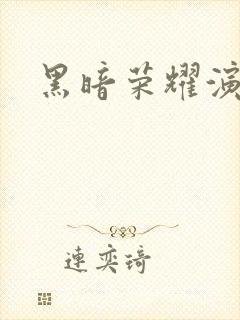 黑暗荣耀演
連奕琦